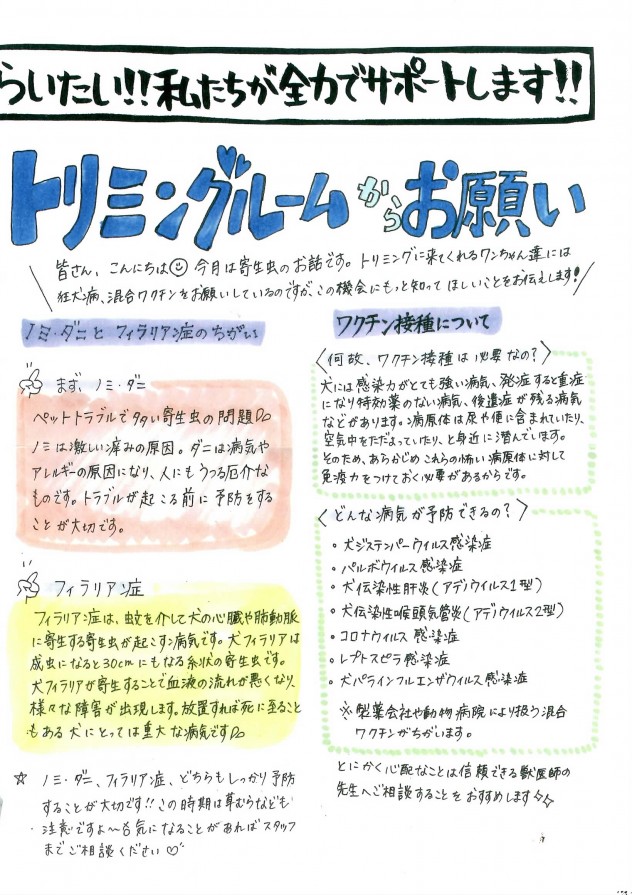 らいたい!!私たちが全力でサポートします!!
トリミングルームからお願い
皆さん、こんにちは 今月は寄生虫のお話です。トリミングに来てくれるワンちゃん達には
狂犬病、混合ワクチンをお願いしているのですが、この機会にもっと知ってほしいことをお伝えします!
ノミ・ダニとフィラリアン症のちがい
まず、ノミ・ダニ
ペットトラブルで多い寄生虫の問題
ノミは激しい痒みの原因。ダニは病気や
アレルギーの原因になり、人にもうつる厄介な
ものです。トラブルが起こる前に予防をする
ことが大切です。
フィラリアン症
フィラリアン症は、蚊を介して犬の心臓や肺動脈
に寄生する寄生虫が起こす病気です。犬フィラリアは
成虫になると30cmにもなる糸状の寄生虫です。
犬フィラリアが寄生することで血液の流れが悪くなり、
様々な障害が出現します。放置すれば死に至ること
もある犬にとっては重大な病気です
☆ ノミ・ダニ、フィラリアン症、どちらもしっかり予防
することが大切です!!この時期は草むらなども
注意ですよ〜 気になることがあればスタッフ
までご相談ください♡
ワクチン接種について
〈何故、ワクチン接種は必要なの?〉
犬には感染力がとても強い病気、発症すると重症
になり特効薬のない病気、後遺症が残る病気
などがあります。病原体は尿や便に含まれていたり、
空気中をただよっていたり、と身近に潜んでします。
そのため、あらかじめこれらの怖い病原体に対して
免疫力をつけておく必要があるからです。
〈どんな病気が予防できるの?〉
・犬ジステンパーウイルス感染症
・パルボウイルス感染症
・犬伝染性肝炎(アデノウイルス1型)
・犬伝染性喉頭気管炎(アデノウイルス2型)
・コロナウイルス感染症
・レプトスピラ感染症
・犬パラインフルエンザウイルス感染症
※製薬会社や動物病院により扱う混合
ワクチンがちがいます。
とにかく心配なことは信頼できる獣医師の
先生へご相談することをおすすめします